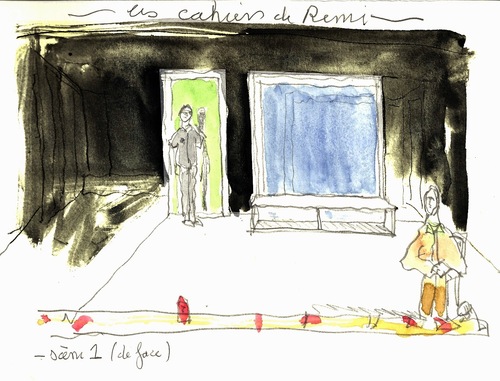 les cahiers de Remi
- scène 1 (de face)